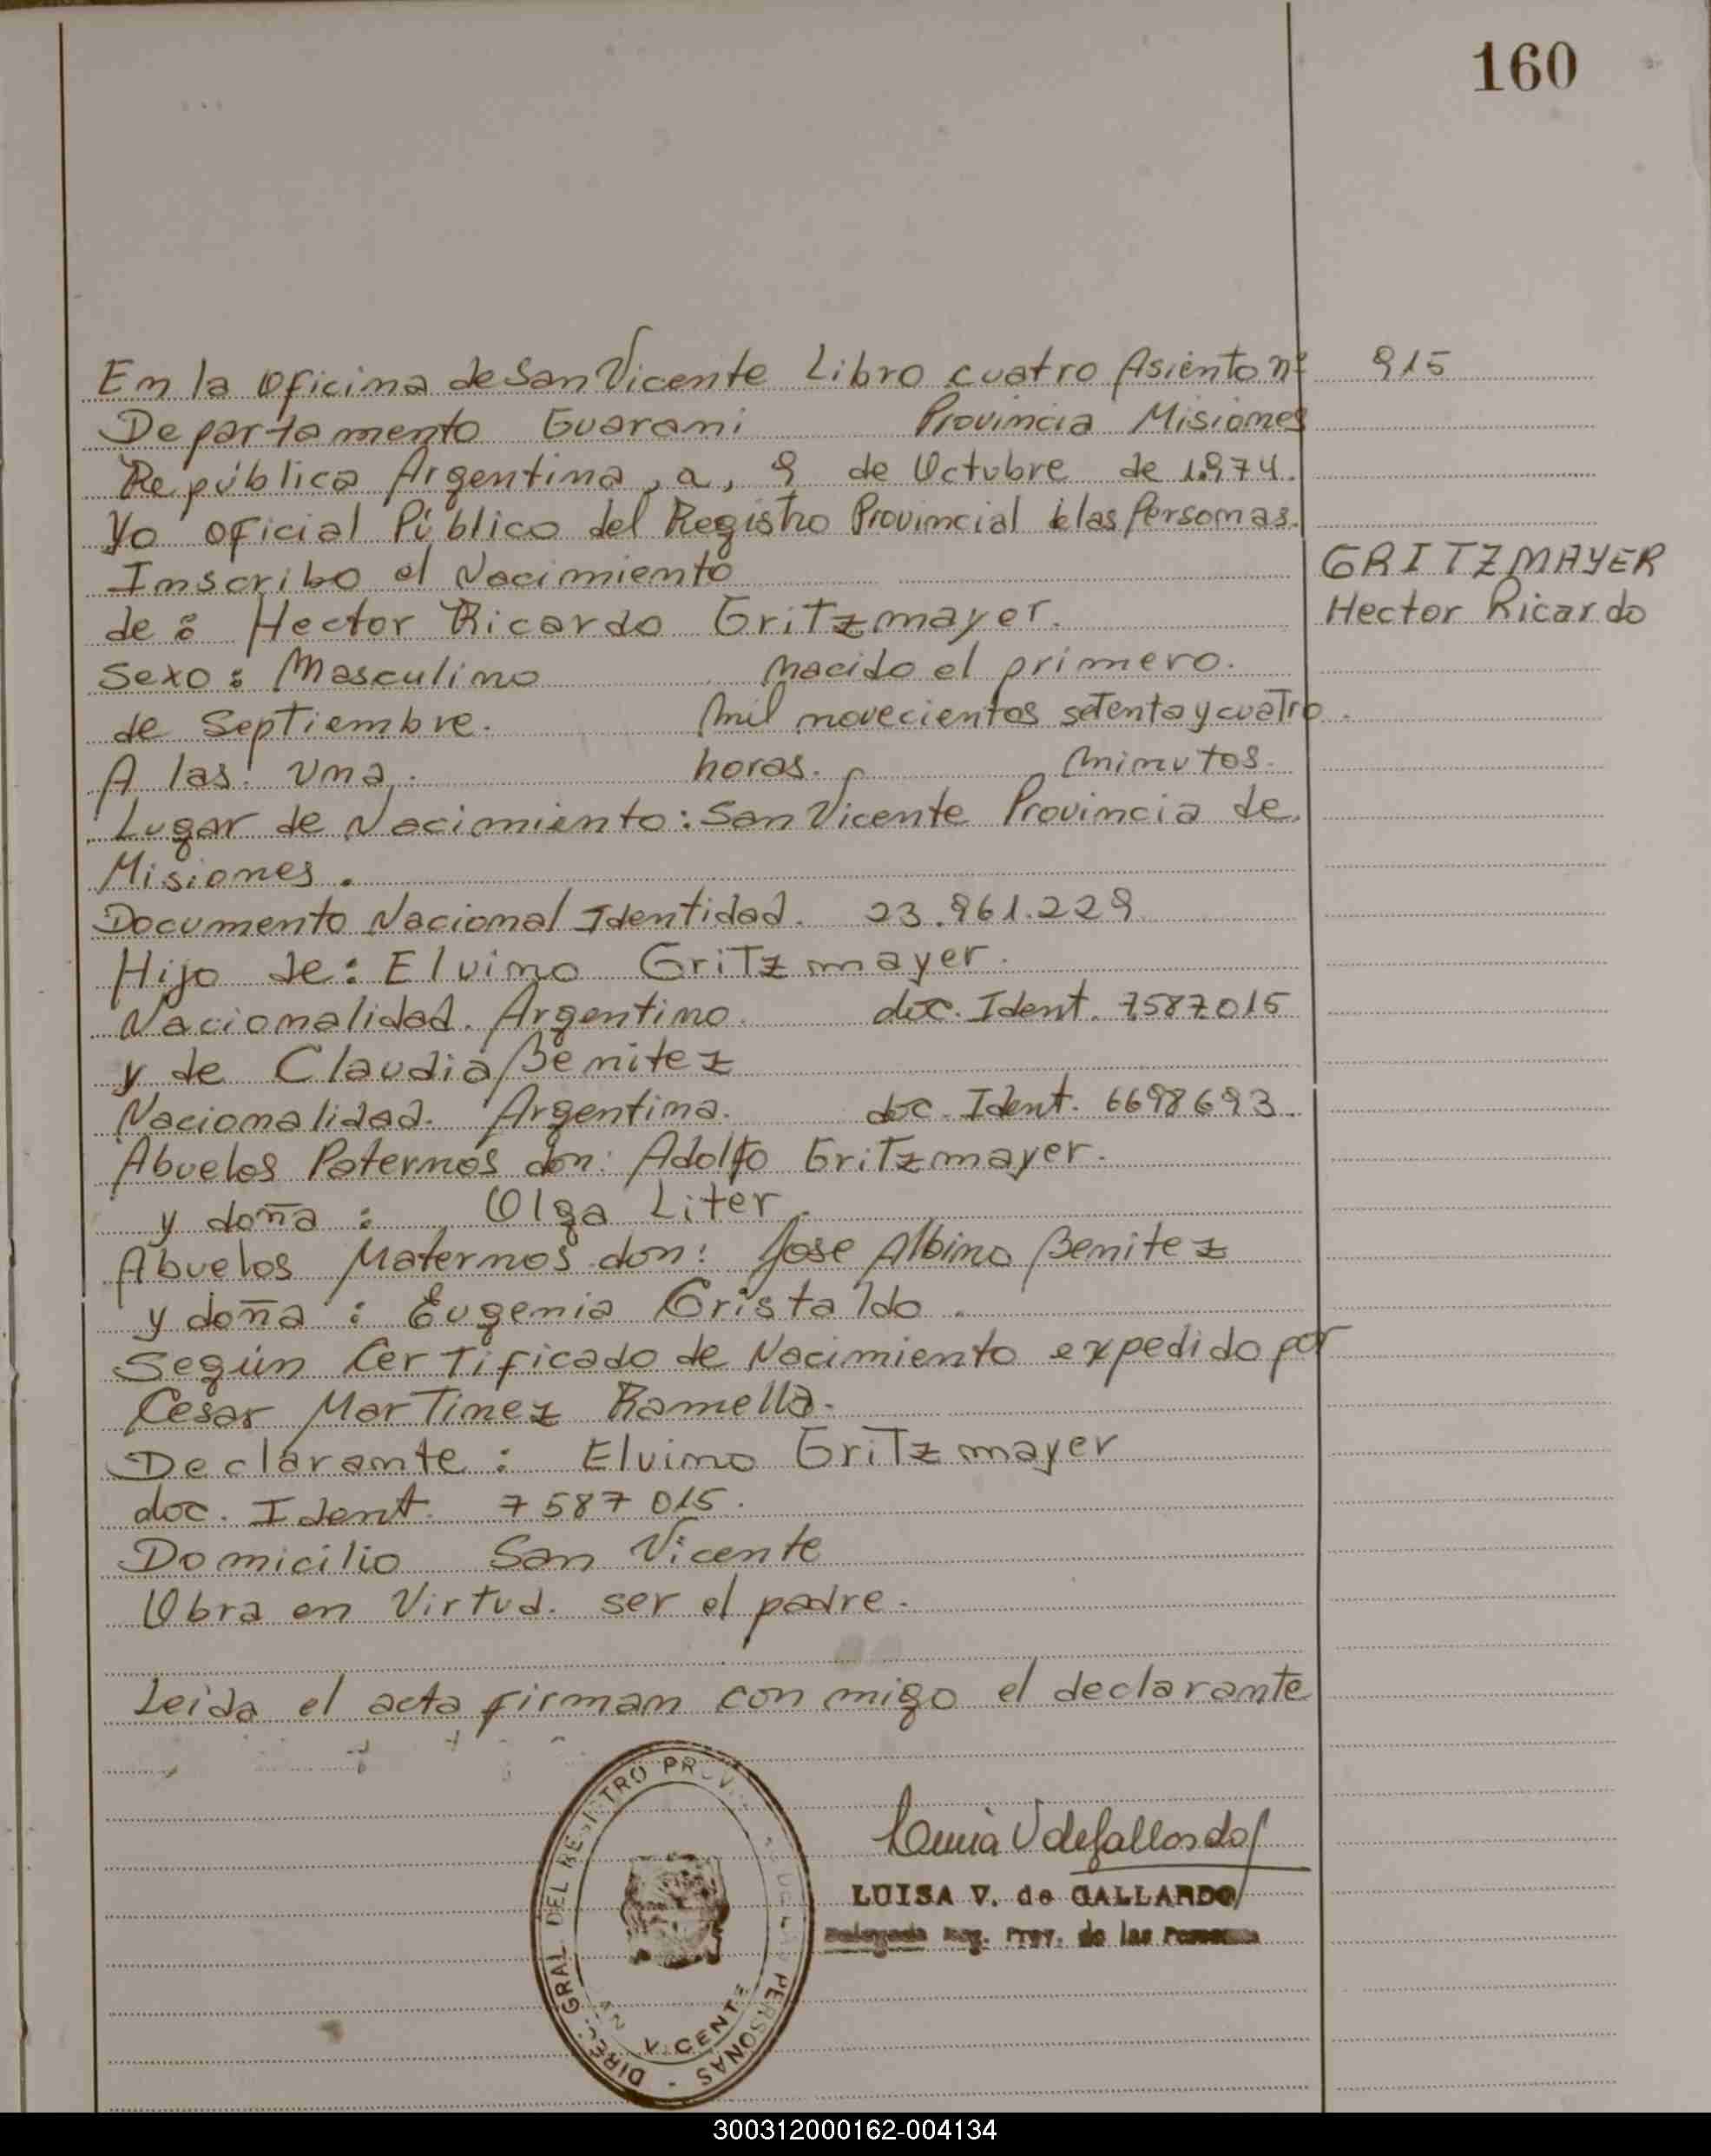 160
En la Oficina de San Vicente Libro cuatro Asiento nº 915
Departamento Guarani Provincia Misiones
República Argentina, a, 9 de Octubre de 1.974.
Yo oficial Público del Registro Provincial de las Personas.
Inscribo el Nacimiento
GRITZMAYER
de: Hector Ricardo Gritzmayer.
Hector Ricardo
Sexo: Masculino nacido el primero.
de Septiembre. Mil novecientos setenta y cuatro.
A las: una. horas. minutos.
Lugar de Nacimiento: San Vicente Provincia de
Misiones.
Documento Nacional Identidad. 23.961.229
Hijo de: Elvino Gritzmayer.
Nacionalidad. Argentino. doc. Ident. 7587015
y de Claudia Benitez
Nacionalidad. Argentina. doc. Ident. 6698693.
Abuelos Paternos don: Adolfo Gritzmayer.
y doña: Olga Liter.
Abuelos Maternos don: Jose Albino Benitez
y doña: Eugenia Cristaldo.
Según Certificado de Nacimiento expedido por
Cesar Martinez Ramella.
Declarante: Elvino Gritzmayer
doc. Ident. 7587015.
Domicilio San Vicente
Obra en Virtud. ser el padre.
Leida el acta firman con migo el declarante
DIREC. GRAL DEL REGISTRO PROV. DE LAS PERSONAS -
VICENTE
Luisa V de Gallardo
LUISA V. de GALLARDO
Delegada Reg. Prov. de las Personas
300312000162-004134